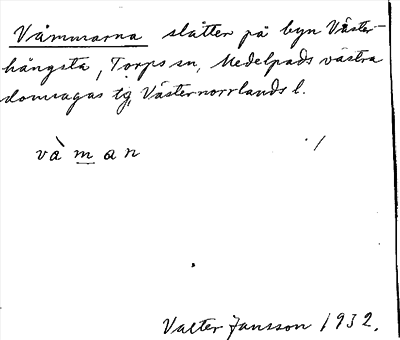 Våmmarna slåtter på byn Väster-
hångsta, Torps sn, Medelpads västra
domsagas tg, Västernorrlands l.
våman
Valter Jansson 1932.